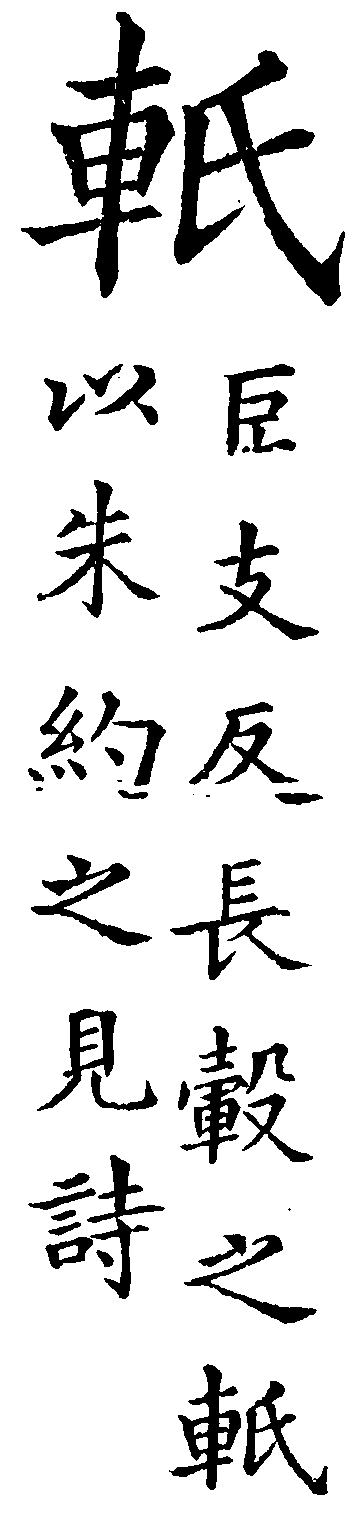 軝
臣支反長轂之軝
以朱約之見詩